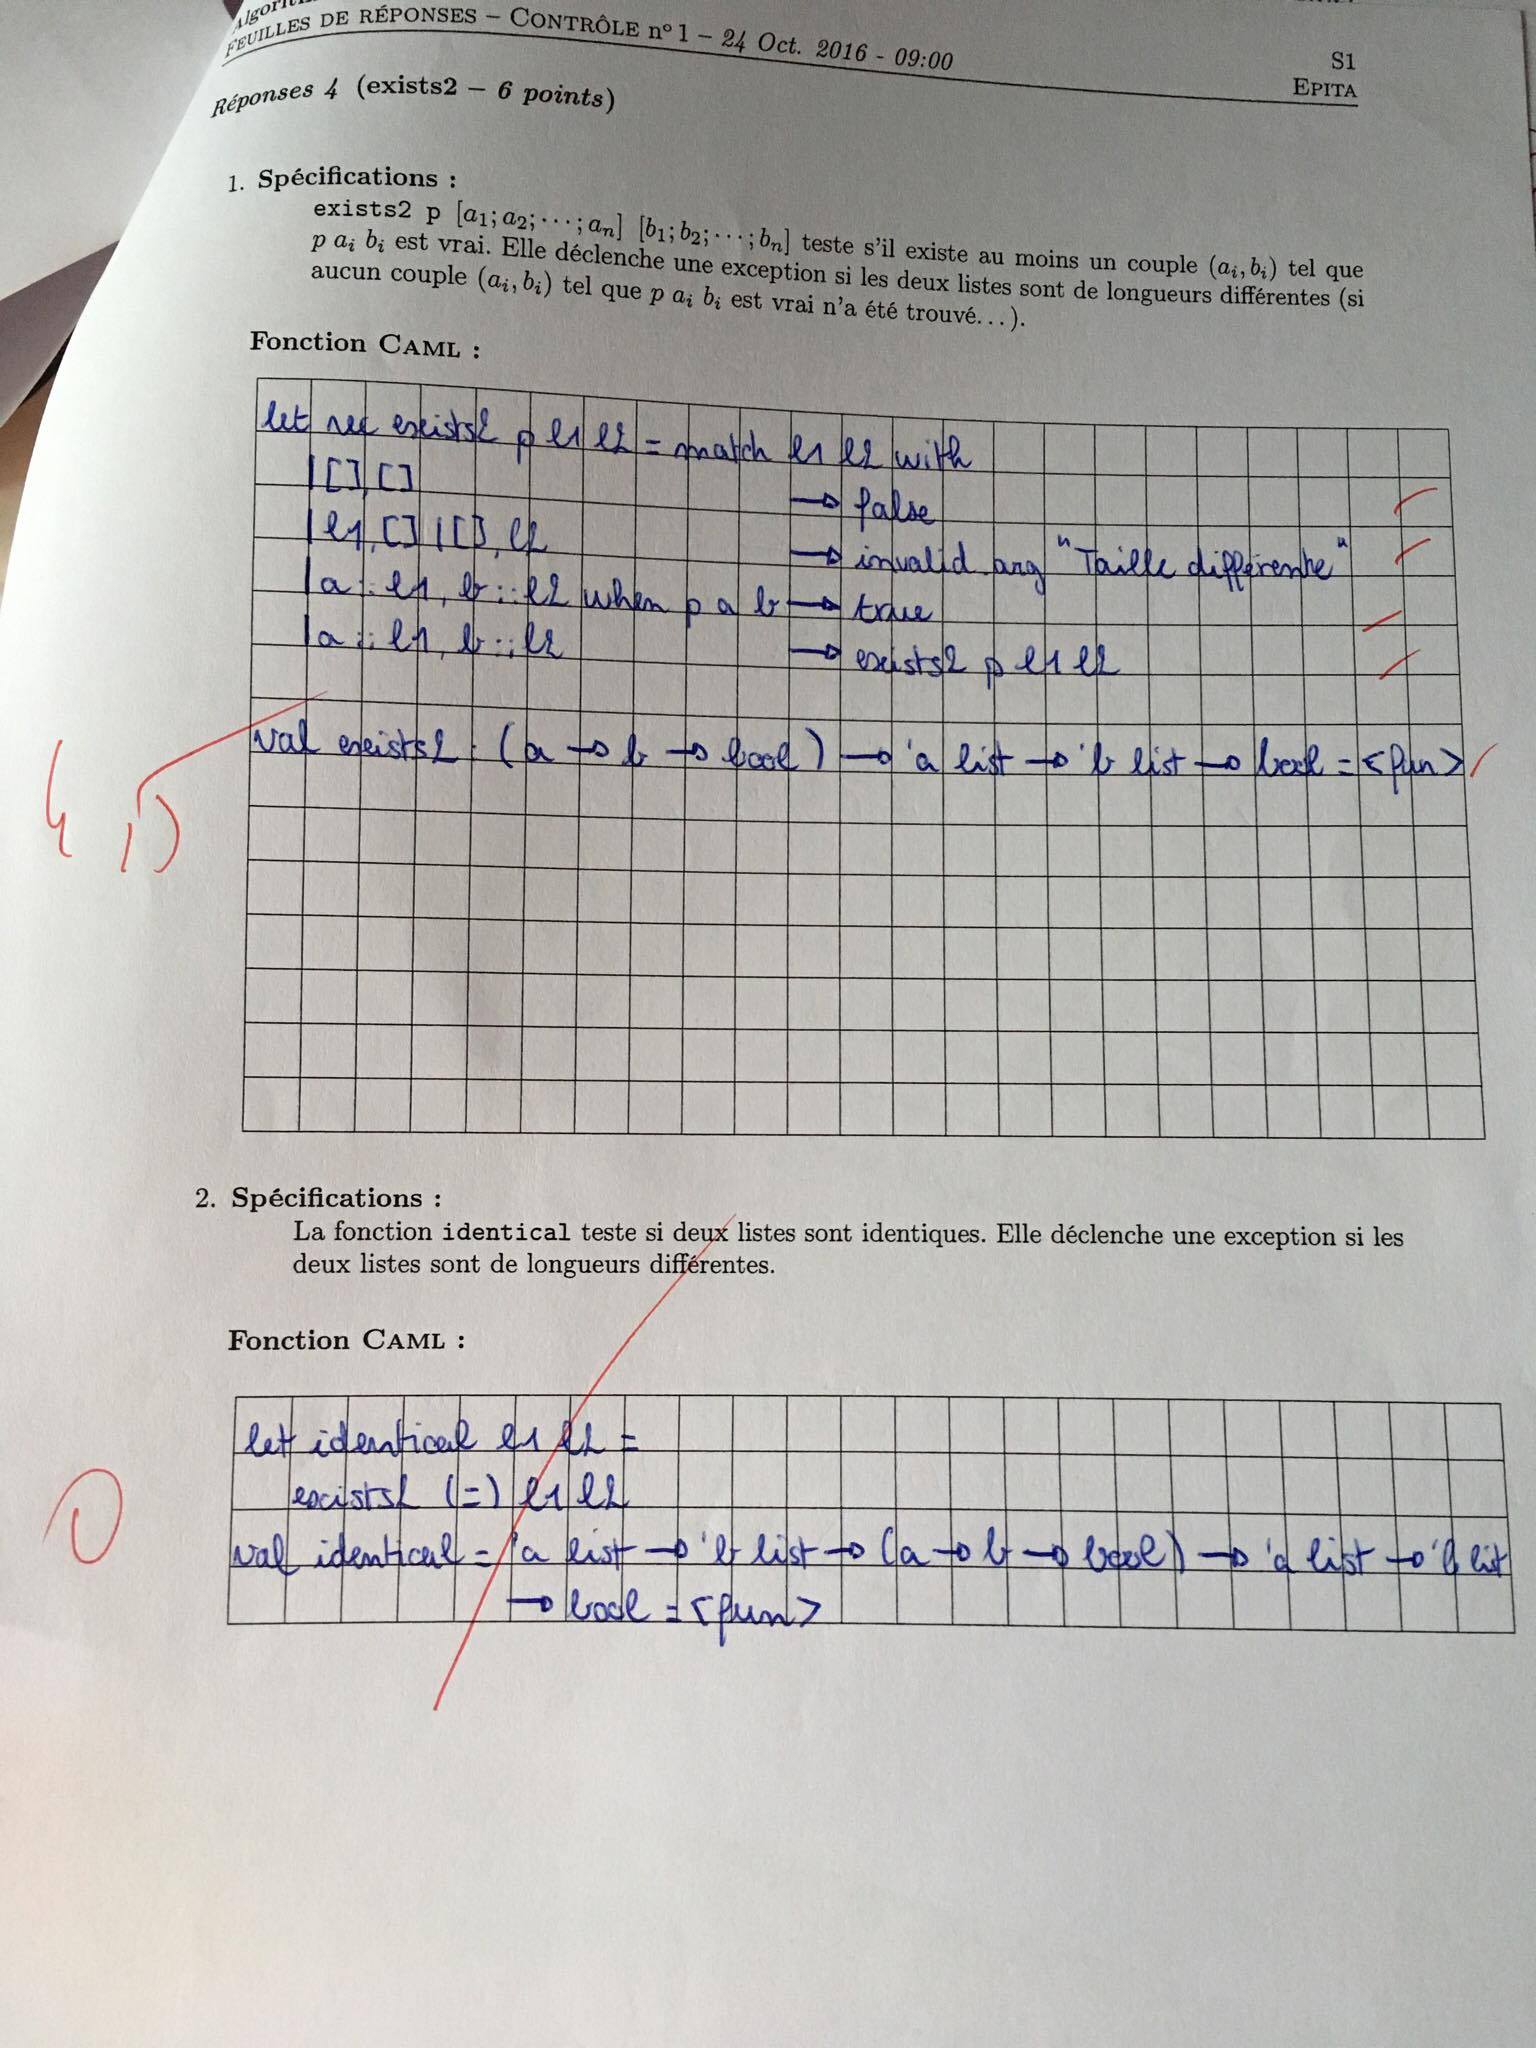 Algorit
FEUILLES DE RÉPONSES – CONTRÔLE nº 1 – 24 Oct. 2016 - 09:00
S1
EPITA
Réponses 4 (exists2 – 6 points)
1. Spécifications :
exists2 p [a1; a2; ···; an] [b1; b2; ···; bn] teste s'il existe au moins un couple (ai, bi) tel que
p ai bi est vrai. Elle déclenche une exception si les deux listes sont de longueurs différentes (si
aucun couple (ai, bi) tel que p ai bi est vrai n'a été trouvé...).
Fonction CAML :
let rec exists2 p l1 l2 = match l1 l2 with
|[],[] → false
|l1,[] |[],l2 → invalid_arg "Taille différente"
|a::l1, b::l2 when p a b → true
|a::l1, b::l2 → exists2 p l1 l2
val exists2 : (a → b → bool) → 'a list → 'b list → bool = <fun>
2. Spécifications :
La fonction identical teste si deux listes sont identiques. Elle déclenche une exception si les
deux listes sont de longueurs différentes.
Fonction CAML :
let identical l1 l2 =
exists2 (=) l1 l2
0
val identical = 'a list → 'b list → (a → b → bool) → 'a list → 'b list
→ bool = <fun>